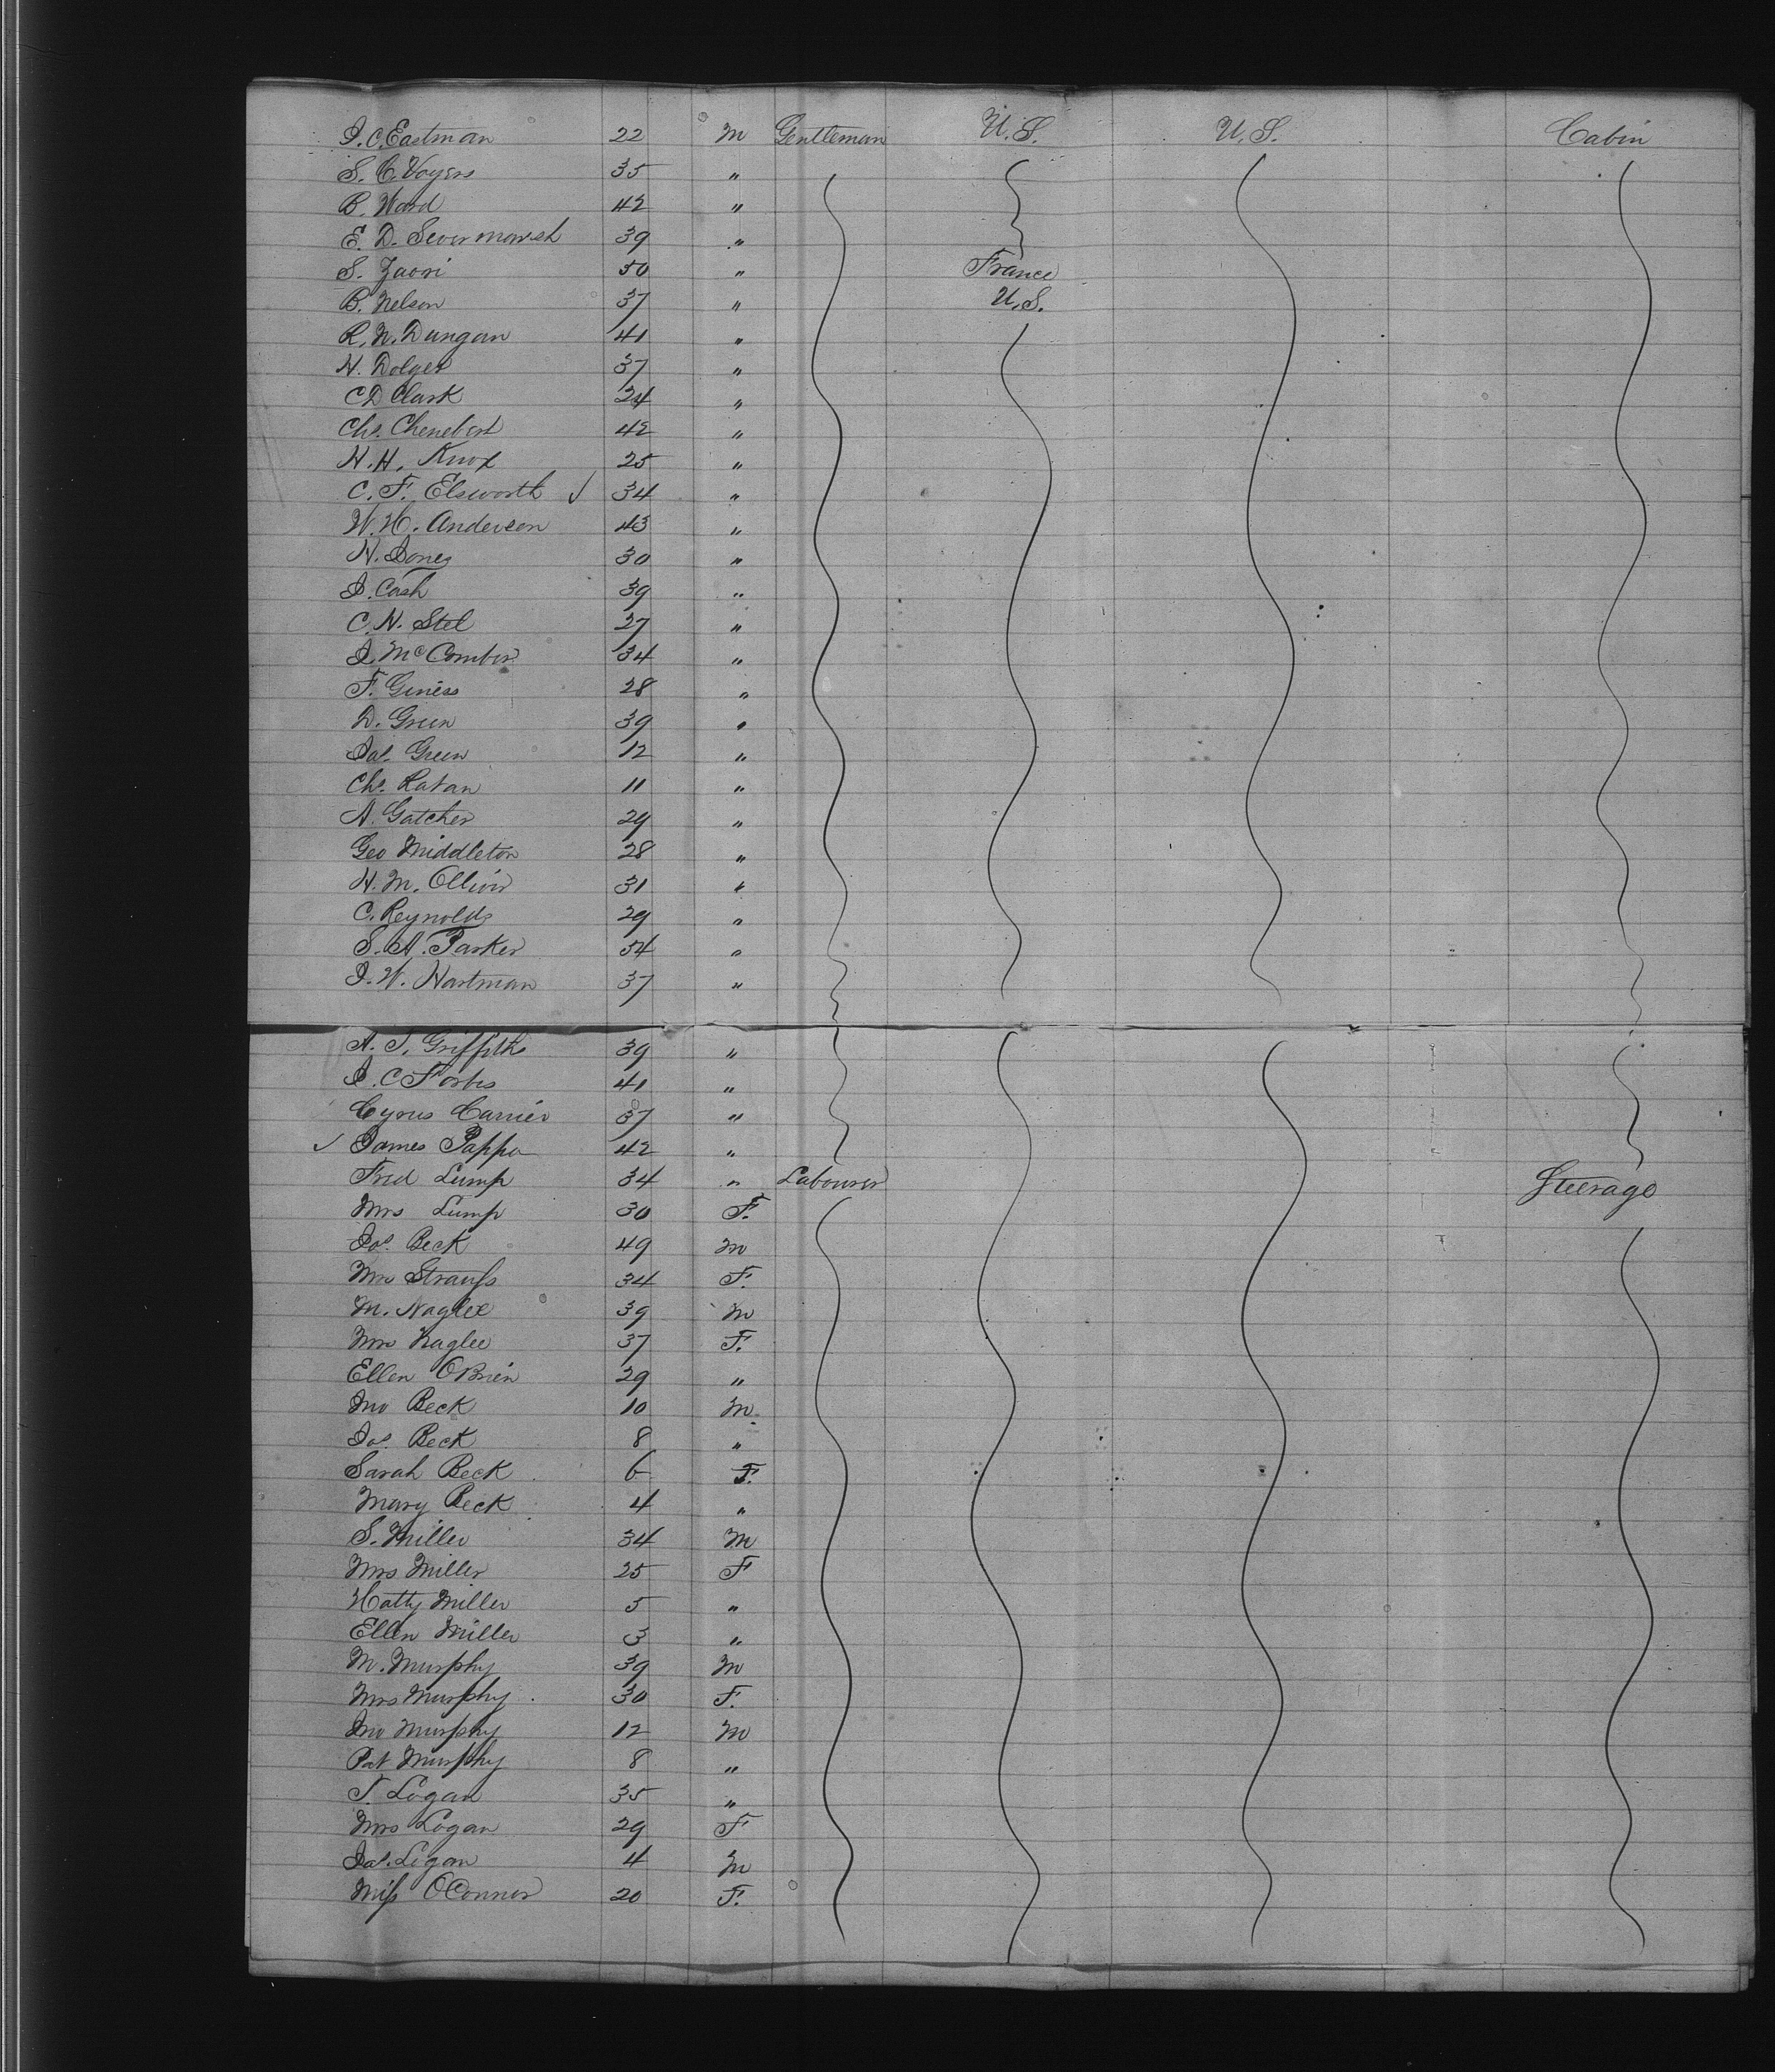 J. C. Eastman 22 M Gentleman U.S. U.S. Cabin
S. C. Voyers 35 "
B. Ward 42 "
E. D. 39 "
S. 50 " France
B. Nelson 37 " U.S.
R. N. Dungan 41 "
H. Dolger 37 "
C D Clark 24 "
Chs. 42 "
H. H. Knox 25 "
C. F. Elsworth ✓ 34 "
W. H. Anderson 43 "
H. Jones 30 "
J. Cash 39 "
C. H. Stel 27 "
J. McComber 34 "
F. Giness 28 "
D. Green 39 "
Jas. Green 12 "
Chs. Ratan 11 "
A. Gatcher 29 "
Geo Middleton 28 "
H. M. Ollivir 31 "
C. Reynolds 29 "
S. A. Parker 34 "
J. W. Hartman 37 "
A. T. Griffiths 39 "
J. C Forbes 41 "
Cyrus Carrier 37 "
✓ James Pappa 42 "
Fred Lump 34 " Labourer Steerage
Mrs Lump 30 F.
Jos. Beck 49 M
Mrs Strauss 34 F.
M. Naglee 39 M
Mrs Naglee 37 F.
Ellen OBrien 29 "
Jno Beck 10 M.
Jos. Beck 8 "
Sarah Beck 6 F.
Mary Beck 4 "
S. Miller 34 M
Mrs Miller 25 F
Hatty Miller 5 "
Ellen Miller 3 "
M. Murphy 39 M
Mrs Murphy 30 F.
Jno Murphy 12 M
Pat Murphy 8 "
T. Logan 35 "
Mrs Logan 29 F
Jas. Logan 4 M
Miss OConnor 20 F.